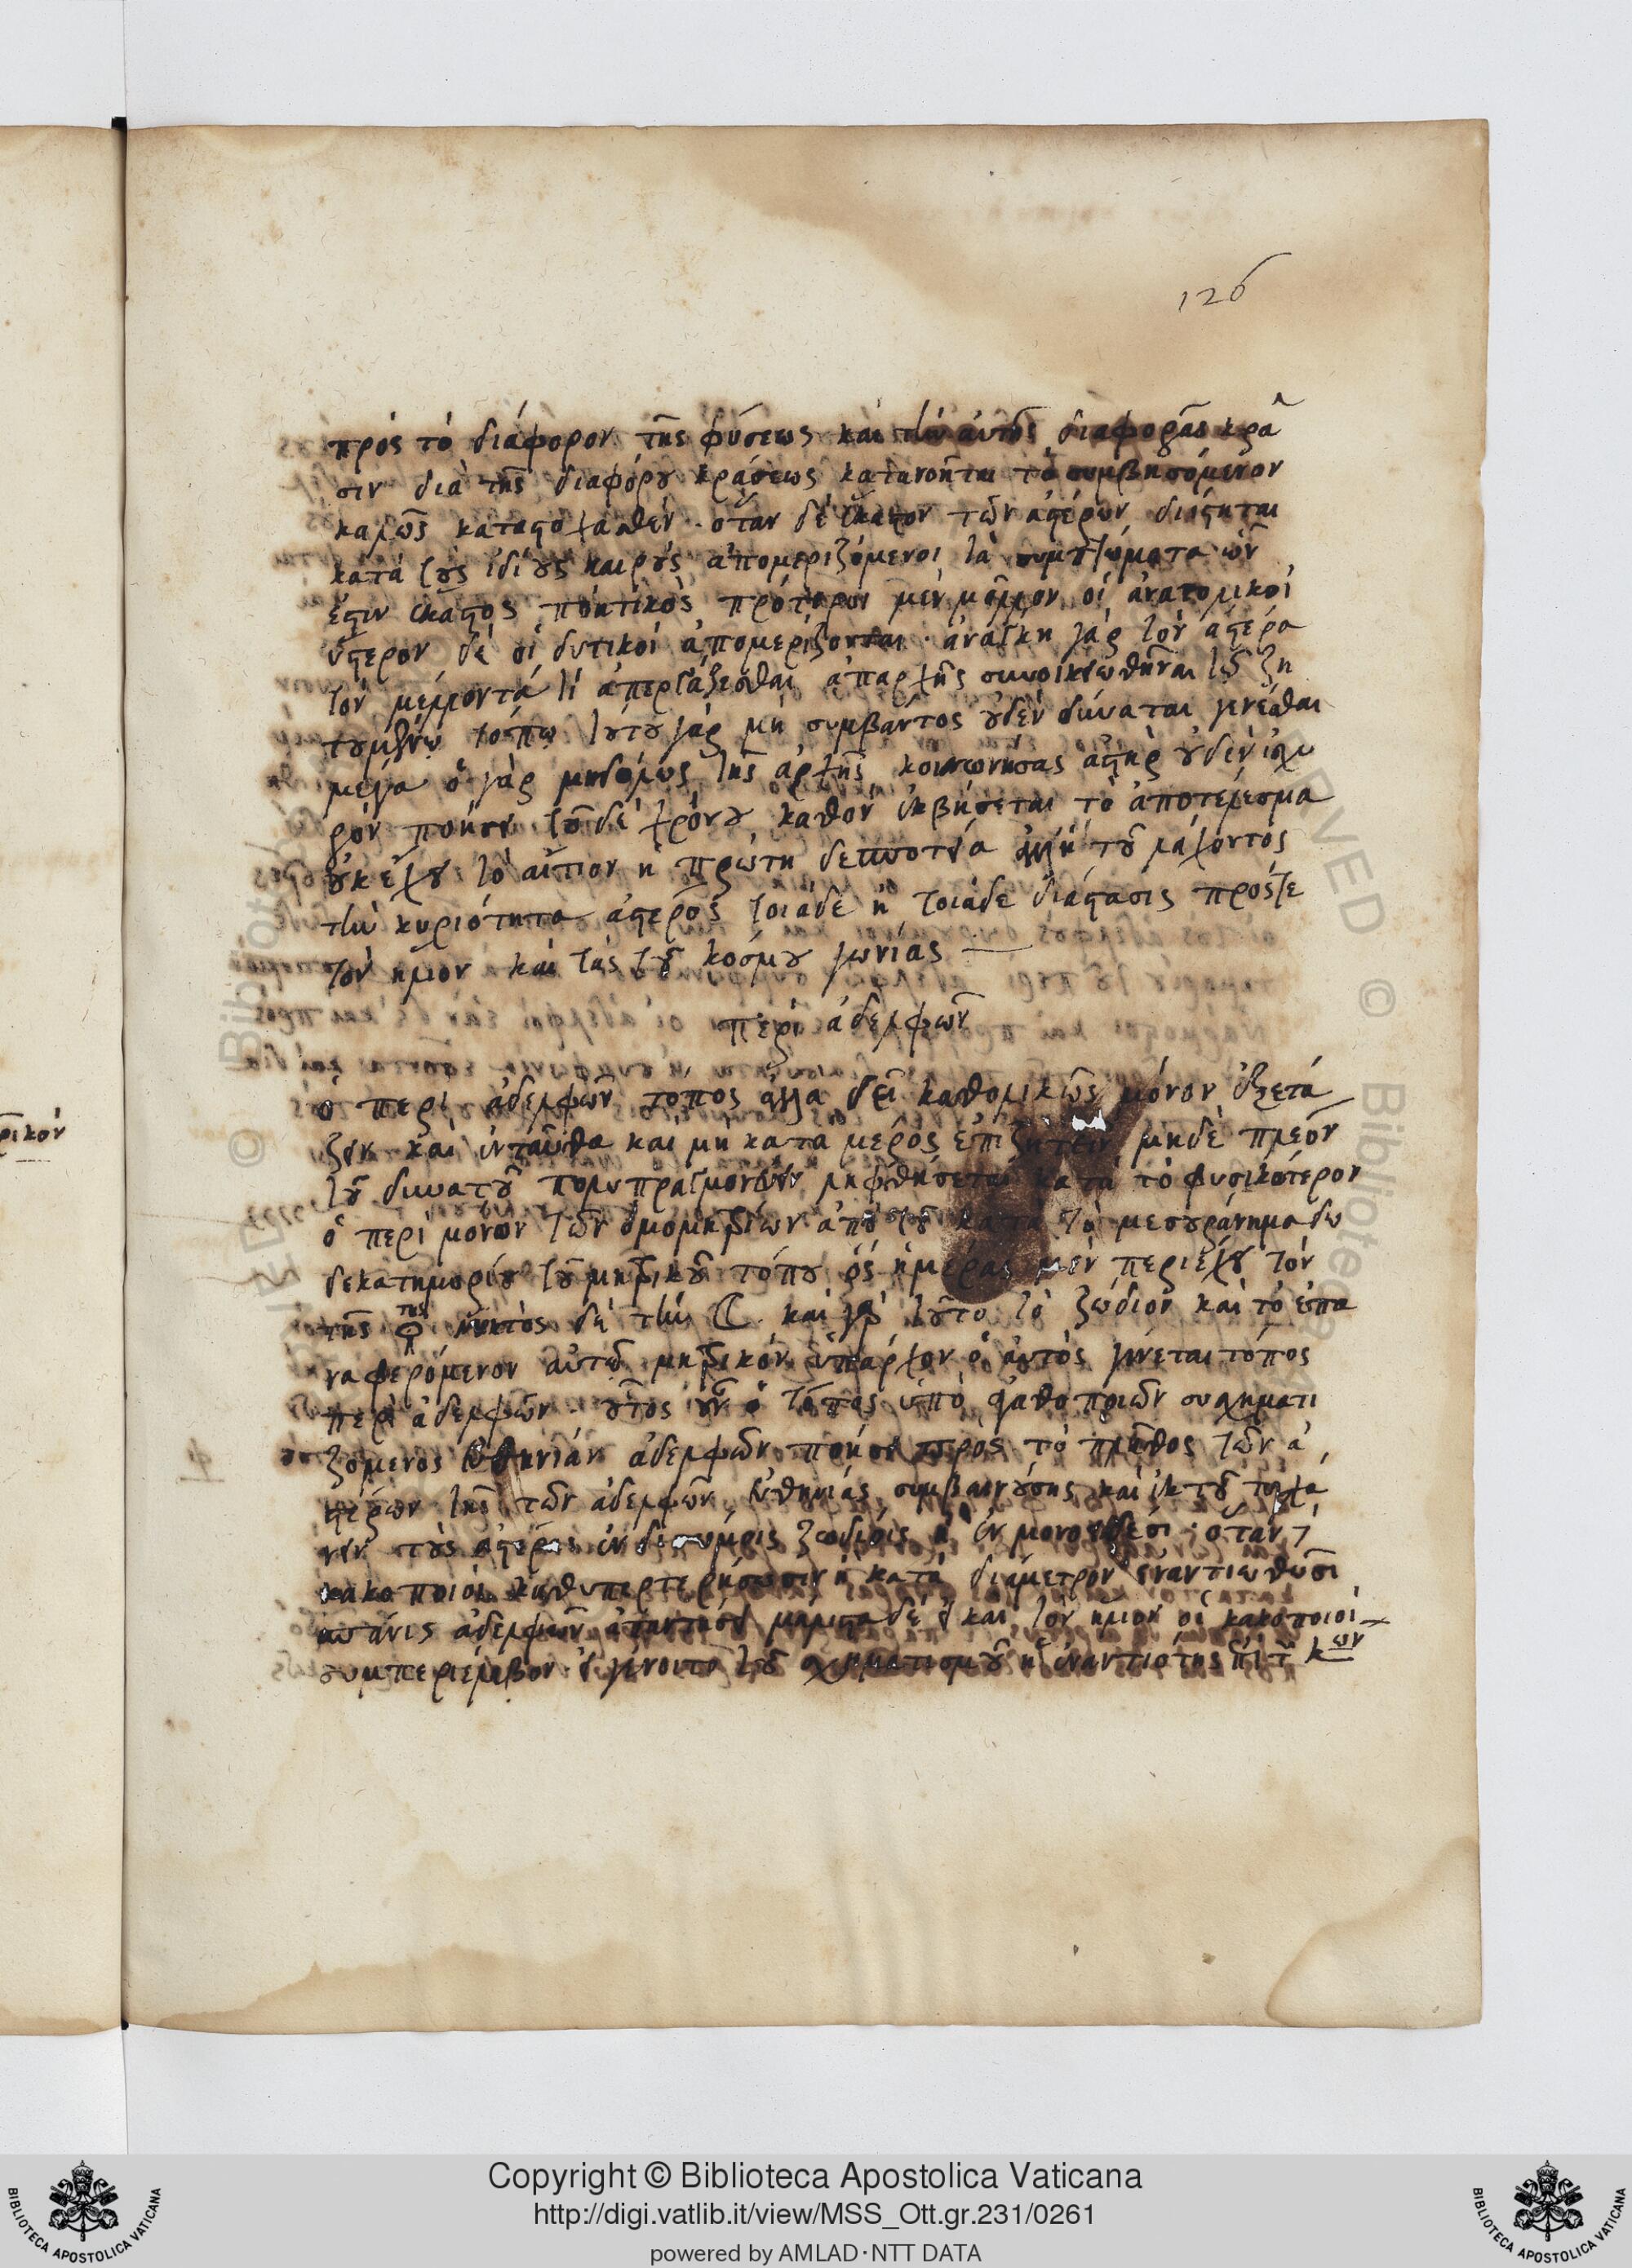 126
πρὸς τὸ διάφορον τῆς φύσεως καὶ τὴν αὐτῆς διαφορᾶς κρᾶ
σιν διὰ τῆς διαφόρου κράσεως κατανοῆται τὸ συμβησόμενον
καλῶς καταστοχασθέν · ὅταν δὲ ἕκαστον τῶν ἀστέρων
κατὰ τοὺς ἰδίους καιροὺς ἀπομεριζόμενοι τὰ συμπτώματα ὧν
ἐστιν ἕκαστος ποιητικὸς πρότερον μὲν μᾶλλον οἱ ἀνατολικοὶ
ὕστερον δὲ οἱ δυτικοὶ ἀπομερίζονται · ἀνάγκη γὰρ τὸν ἀστέρα
τὸν μέλλοντά τι ἀπεργάζεσθαι ἀπαρχῆς συνοικειωθῆναι τῷ ζη
τουμένῳ τόπῳ τούτου γὰρ μὴ συμβάντος οὐδὲν δύναται γενέσθαι
μέγα ὁ γὰρ μηδόλως τῆς ἀρχῆς κοινωνήσας ἀστὴρ οὐδὲν ἰσχυ
ρὸν ποιήσει τοῦ δὲ χρόνου καθὸν ἐκβήσεται τὸ ἀποτέλεσμα
οὐκ ἔχει τὸ αἴτιον ἡ πρώτη δεσποτεία ἀλλ' ἡ τοῦ λαχόντος
τὴν κυριότητα ἀστέρος τοιάδε ἢ τοιάδε διάστασις πρός τε
τὸν ἥλιον καὶ τὰς τοῦ κόσμου γωνίας
περὶ ἀδελφῶν
ὁ περὶ ἀδελφῶν τόπος ἀλλὰ δεῖ καθολικῶς μόνον ἐξετά
ζειν καὶ ἐνταῦθα καὶ μὴ κατὰ μέρος ἐπιζητεῖν μηδὲ πλέον
τοῦ δυνατοῦ πολυπραγμονεῖν ληφθήσεται κατὰ τὸ φυσικότερον
ὁ περὶ μόνων τῶν ὁμομητρίων ἀπὸ τοῦ κατὰ τὸ μεσουράνημα δω
δεκατημορίου τοῦ μητρικοῦ τόπου ὃς ἡμέρας μὲν περιέχει τὸν
τῆς ♀ νυκτὸς δὲ τὴν ☾ καὶ γὰρ τοῦτο τὸ ζώδιον καὶ τὸ ἐπα
ναφερόμενον αὐτῷ μητρικὸν ὑπάρχον ὁ αὐτὸς γίνεται τόπος
περὶ ἀδελφῶν · οὗτος οὖν ὁ τόπος ὑπὸ ἀγαθοποιῶν συσχηματι
ζόμενος εὐθηνίαν ἀδελφῶν ποιήσει πρὸς τὸ πλῆθος τῶν ἀ
στέρων τῆς τῶν ἀδελφῶν εὐθηνίας συμβαινούσης καὶ ἐκ τοῦ τυγχά
νειν τοὺς ἀστέρας ἐν ζωδίοις ἢ ἐν μονοειδέσι · ὅταν
κακοποιοὶ καθυπερτερήσωσιν ἢ κατὰ διάμετρον ἐναντιωθῶσι
σπάνις ἀδελφῶν μάλιστα δὲ εἰ καὶ τὸν ἥλιον οἱ κακοποιοὶ
συμπεριέλαβον εἰ γένοιτο τοῦ σχηματισμοῦ ἡ ἐναντιότης
ρικόν
Copyright © Biblioteca Apostolica Vaticana
http://digi.vatlib.it/view/MSS_Ott.gr.231/0261
powered by AMLAD·NTT DATA
BIBLIOTECA APOSTOLICA VATICANA
BIBLIOTECA APOSTOLICA VATICANA